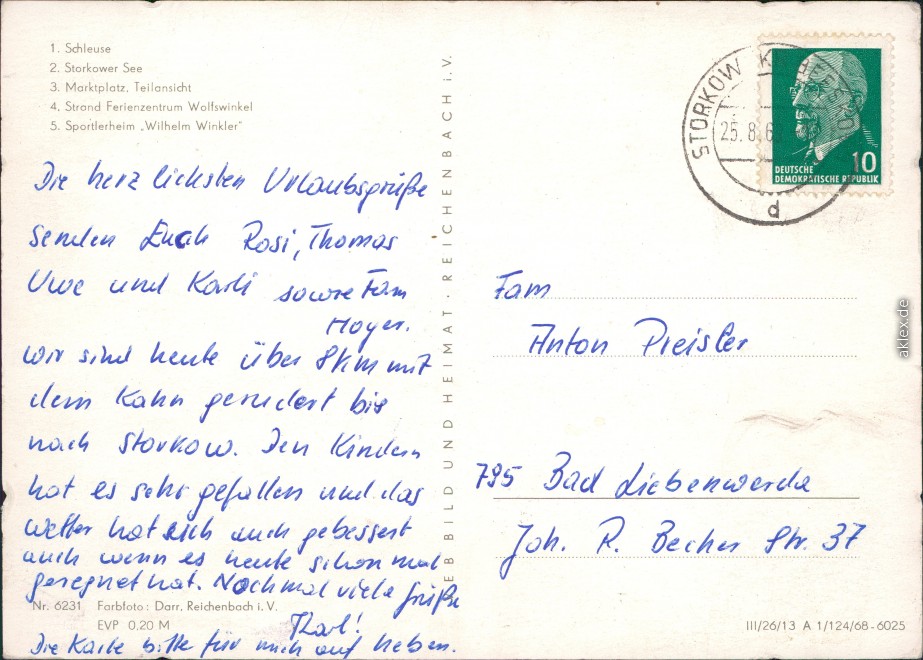 1. Schleuse
2. Storkower See
3. Marktplatz, Teilansicht
4. Strand Ferienzentrum Wolfswinkel
5. Sportlerheim „Wilhelm Winkler"
Die herzlichsten Urlaubsgrüße
senden Euch Rosi, Thomas
Uwe und Karli sowie Fam
Hoyer.
Wir sind heute über 8km mit
dem Kahn gerudert bis
nach Storkow. Den Kindern
hat es sehr gefallen und das
Wetter hat sich auch gebessert
auch wenn es heute schon mal
geregnet hat. Nochmal viele Grüße
Karl!
Die Karte bitte für mich auf heben.
Nr. 6231 Farbfoto: Darr, Reichenbach i. V.
EVP 0,20 M
VEB BILD UND HEIMAT · REICHENBACH i. V.
STORKOW
25.8.6
d
10
DEUTSCHE
DEMOKRATISCHE REPUBLIK
Fam
Anton Preisler
795 Bad Liebenwerda
Joh. R. Becher Str. 37
III/26/13 A 1/124/68-6025
aklex.de